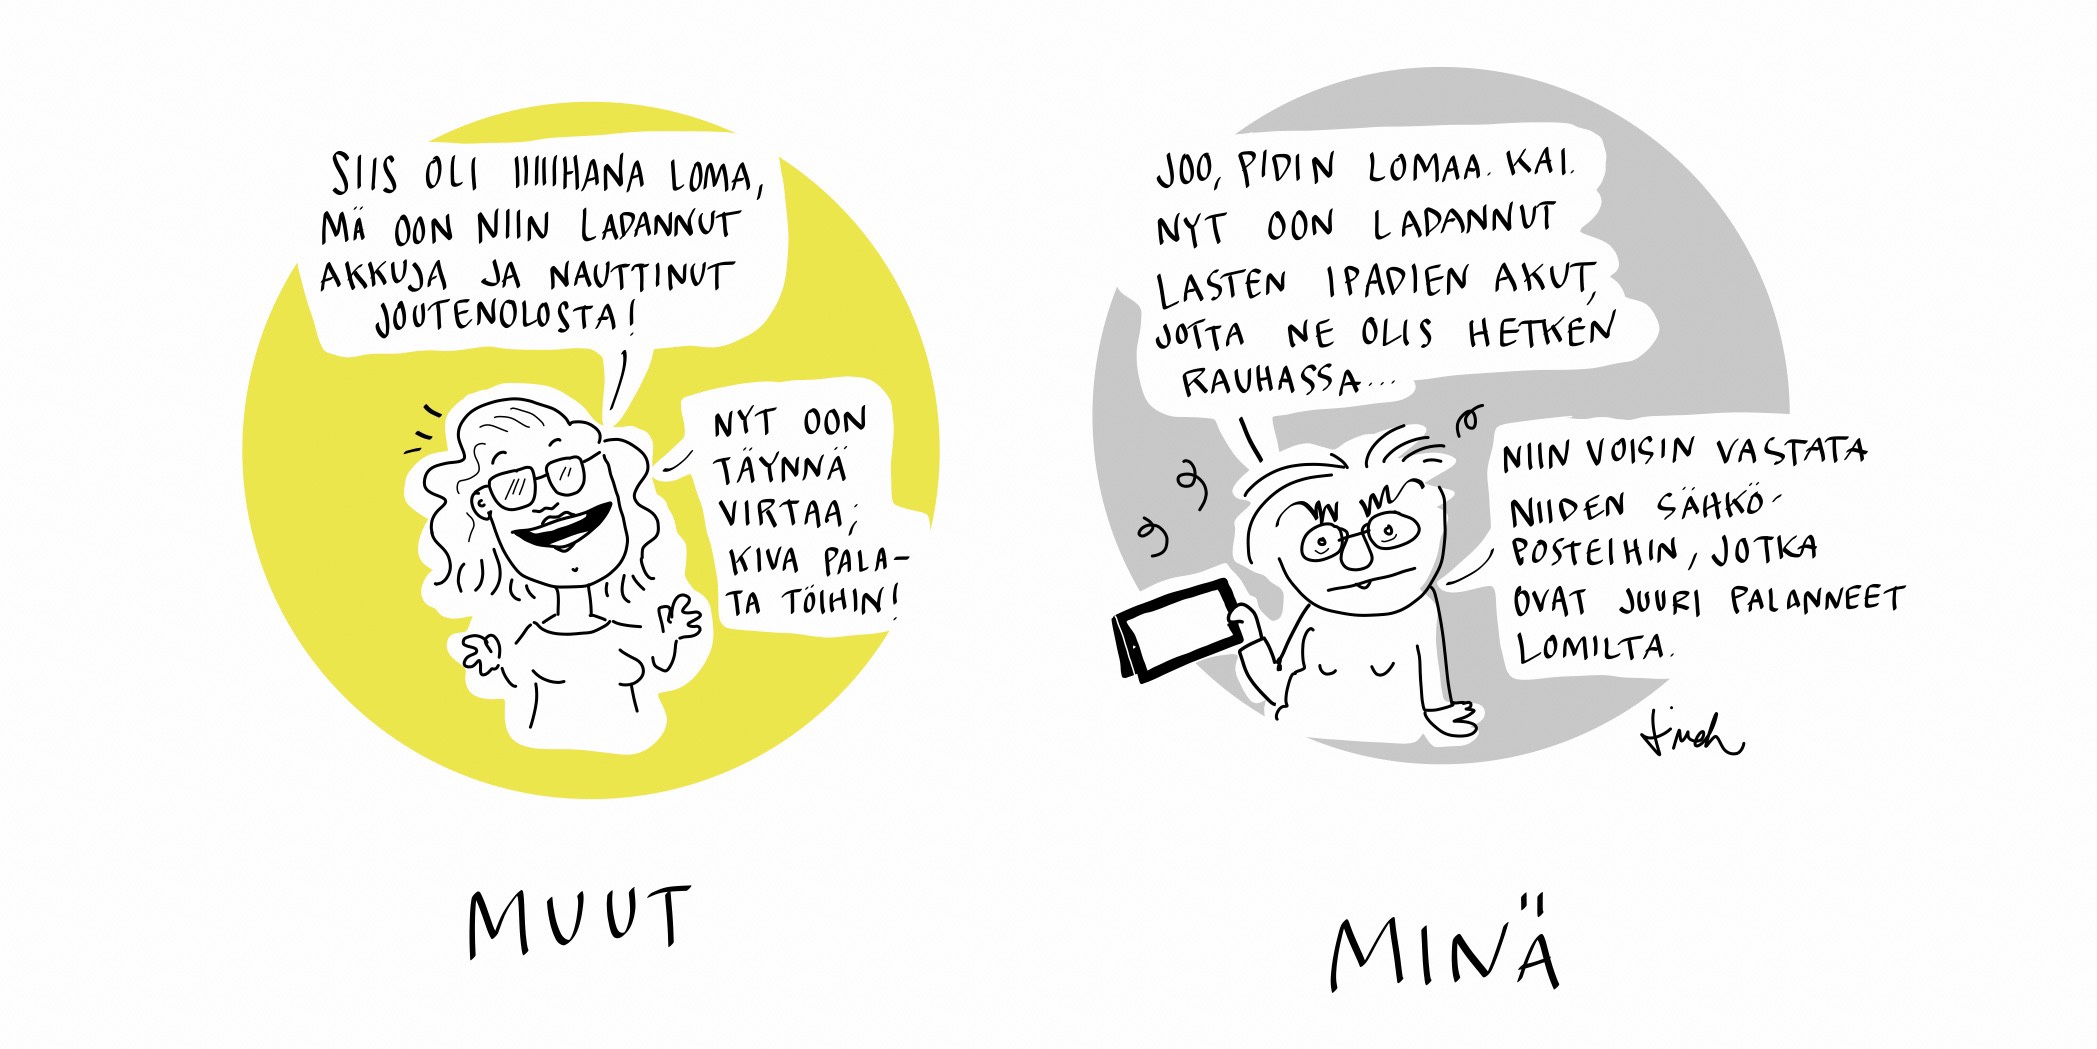 SIIS OLI IIIIIHANA LOMA,
MÄ OON NIIN LADANNUT
AKKUJA JA NAUTTINUT
JOUTENOLOSTA!
NYT OON
TÄYNNÄ
VIRTAA;
KIVA PALA-
TA TÖIHIN!
MUUT
JOO, PIDIN LOMAA. KAI.
NYT OON LADANNUT
LASTEN IPADIEN AKUT,
JOTTA NE OLIS HETKEN
RAUHASSA...
NIIN VOISIN VASTATA
NIIDEN SÄHKÖ-
POSTEIHIN, JOTKA
OVAT JUURI PALANNEET
LOMILTA.
MINÄ